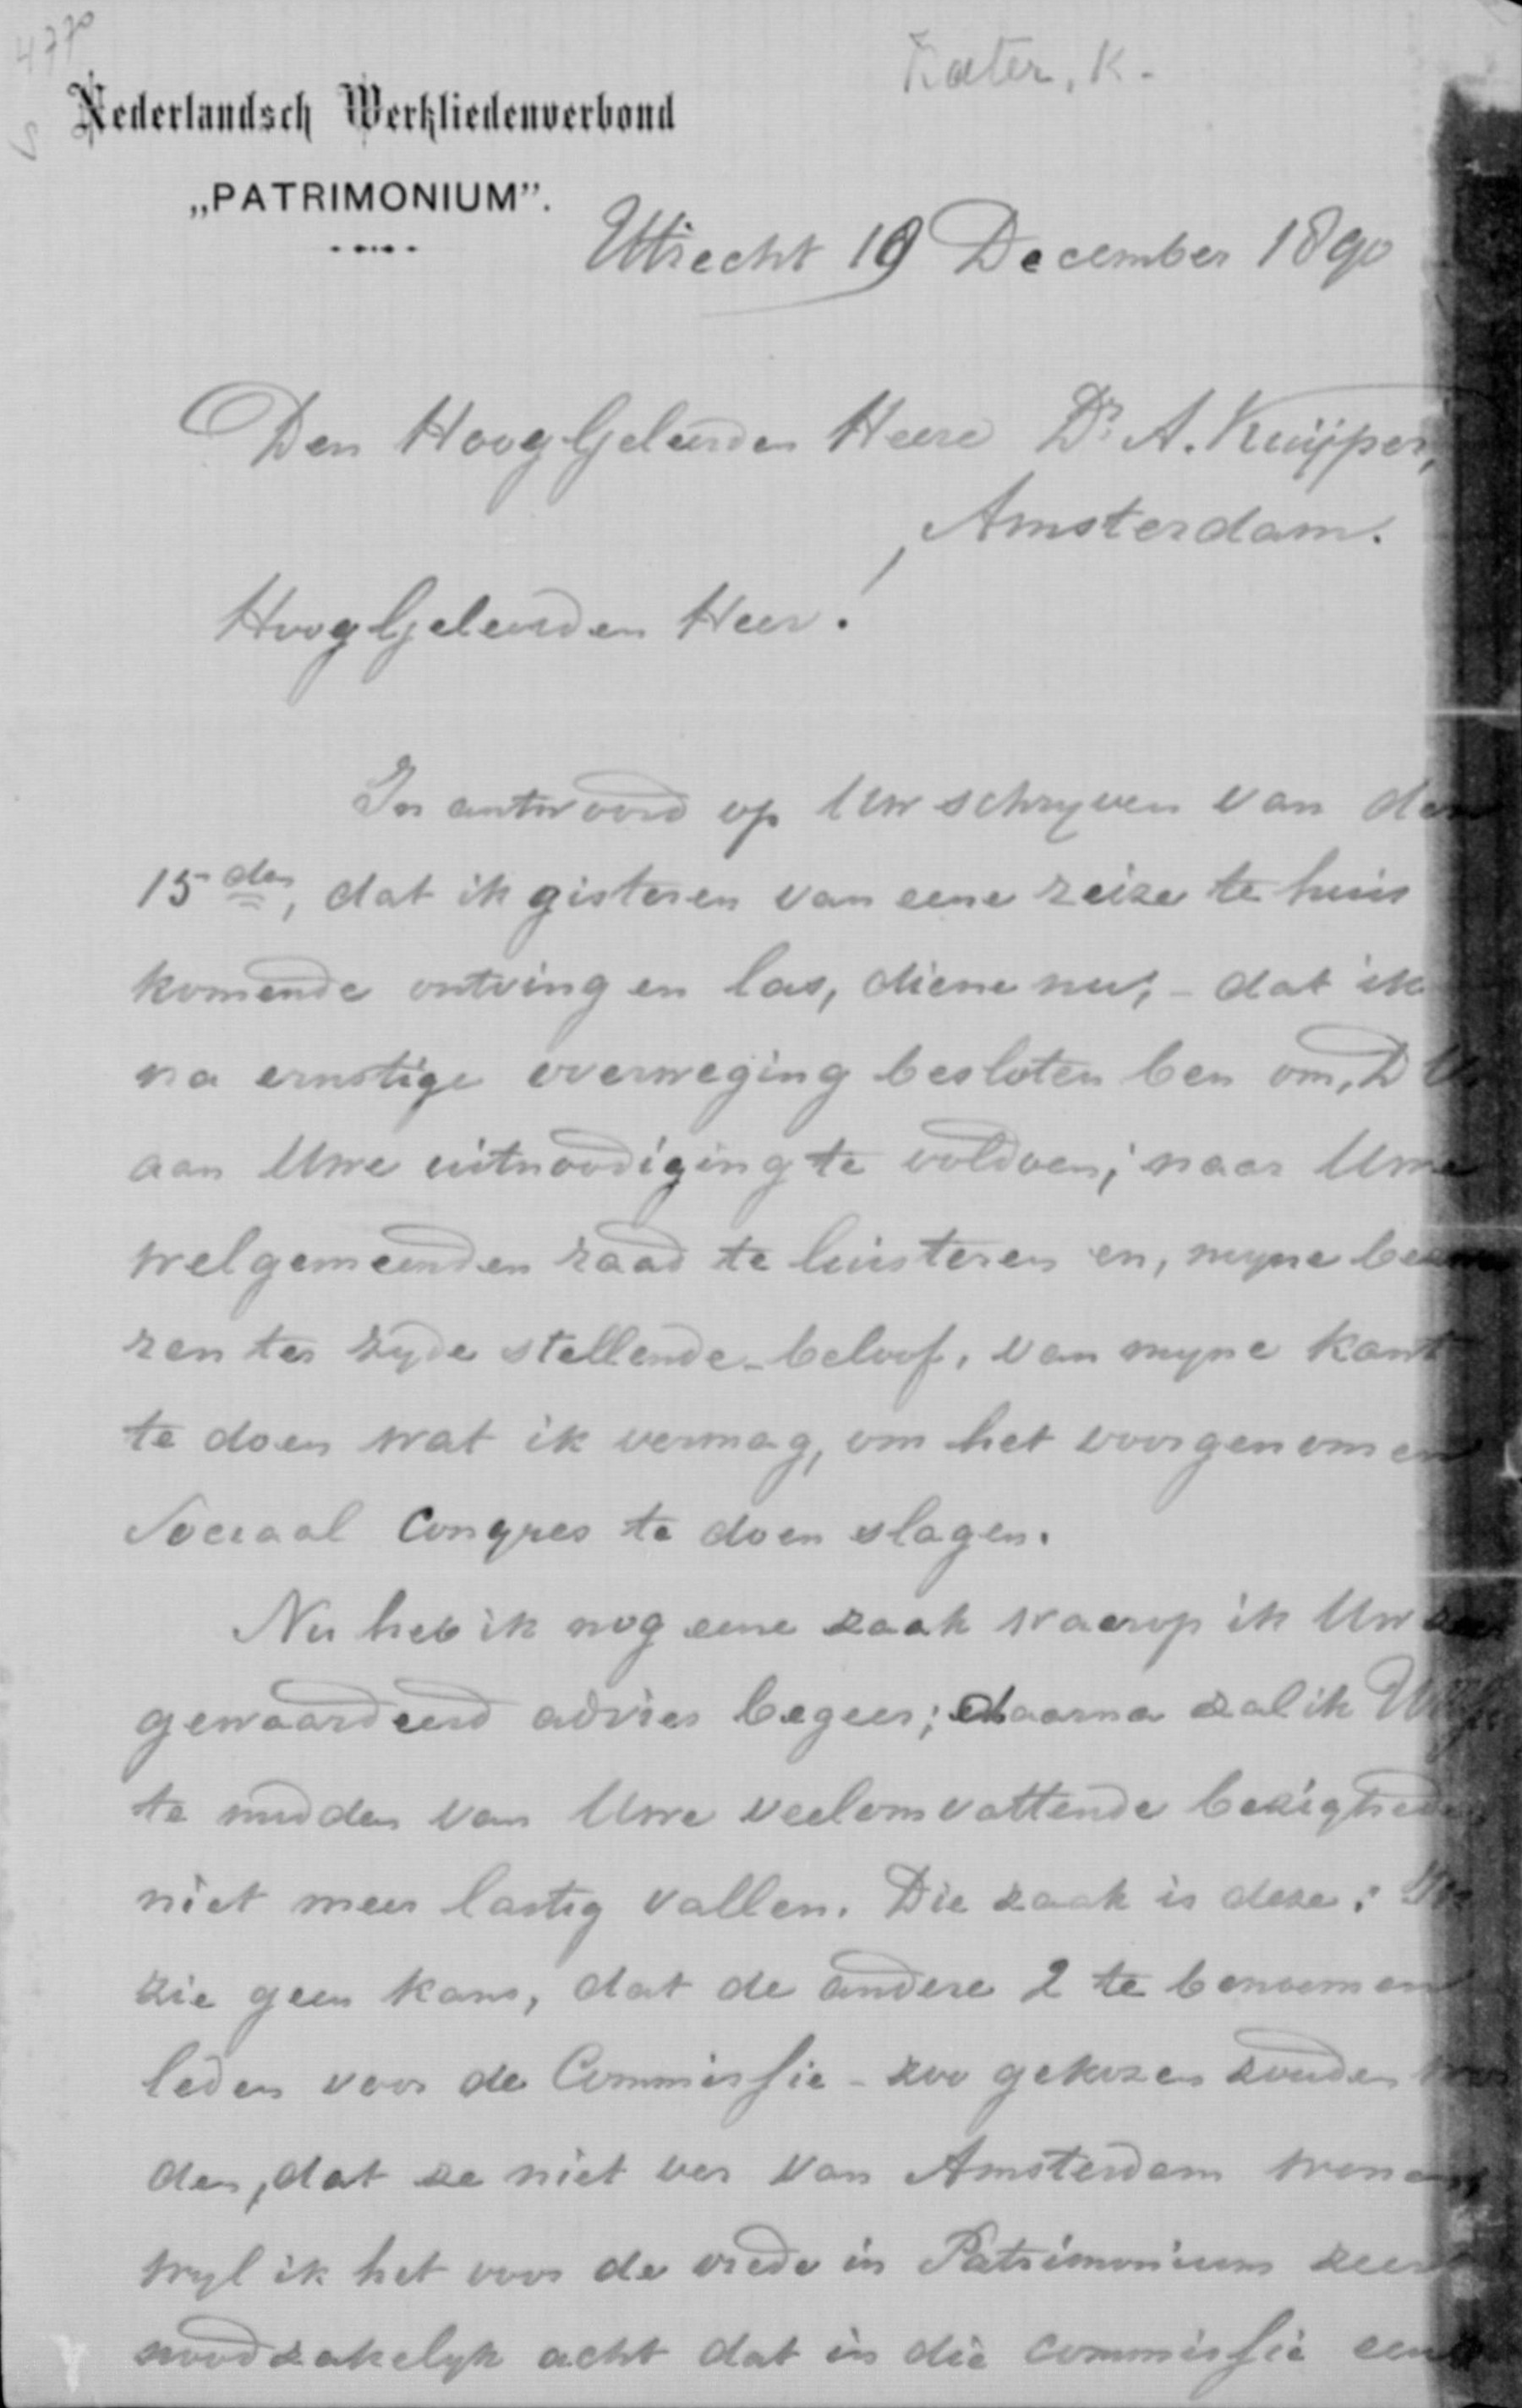 4770
Kater, K.
S
Nederlandsch Werkliedenverbond
„PATRIMONIUM”.
Utrecht 19 December 1890
Den HoogGeleerden Heere Dr. A. Kuijper,
Amsterdam.
HoogGeleerden Heer!
In antwoord op Uw schryven van den
15den, dat ik gisteren van eene reize te huis
komende ontving en las, diene nu, - dat ik
na ernstige overweging besloten ben om, D.V.
aan Uwe uitnoodiging te voldoen; naar Uwe
welgemeenden raad te luisteren en, myne
ren ter zyde stellende - beloof, van myne kant
te doen wat ik vermag, om het voorgenomen
Sociaal Congres te doen slagen.
Nu heb ik nog eene zaak waarop ik Uw zeer
gewaardeerd advies begeer; daarna zal ik
te midden van Uwe veelomvattende bezigheden,
niet meer lastig vallen. Die zaak is deze:
zie geen kans, dat de andere 2 te benoemen
leden voor de Commissie - zoo gekozen zouden wor
den, dat ze niet ver van Amsterdam wonen,
wyl ik het voor de vrede in Patrimonium zeer
noodzakelyk acht dat in die commissie een